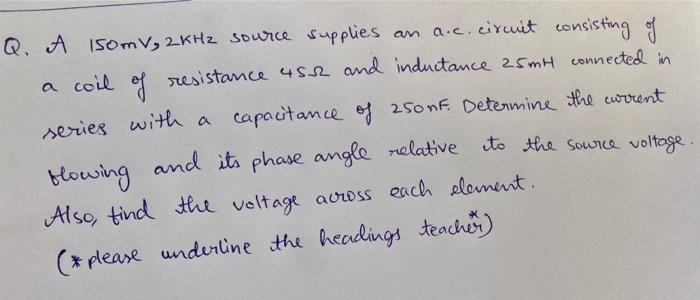 Q. A 150mV, 2KHz source supplies an a.c. circuit consisting of
a coil of resistance 45Ω and inductance 25mH connected in
series with a capacitance of 250nF. Determine the current
flowing and its phase angle relative to the source voltage.
Also, find the voltage across each element.
(* please underline the headings teacher*)